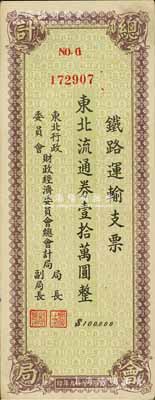 總 計
NO. G
172907
鐵路運輸支票
東北流通券壹拾萬圓整
東北行政委員會
財政經濟委員會總會計局
局長
副局長
$100000
會 局